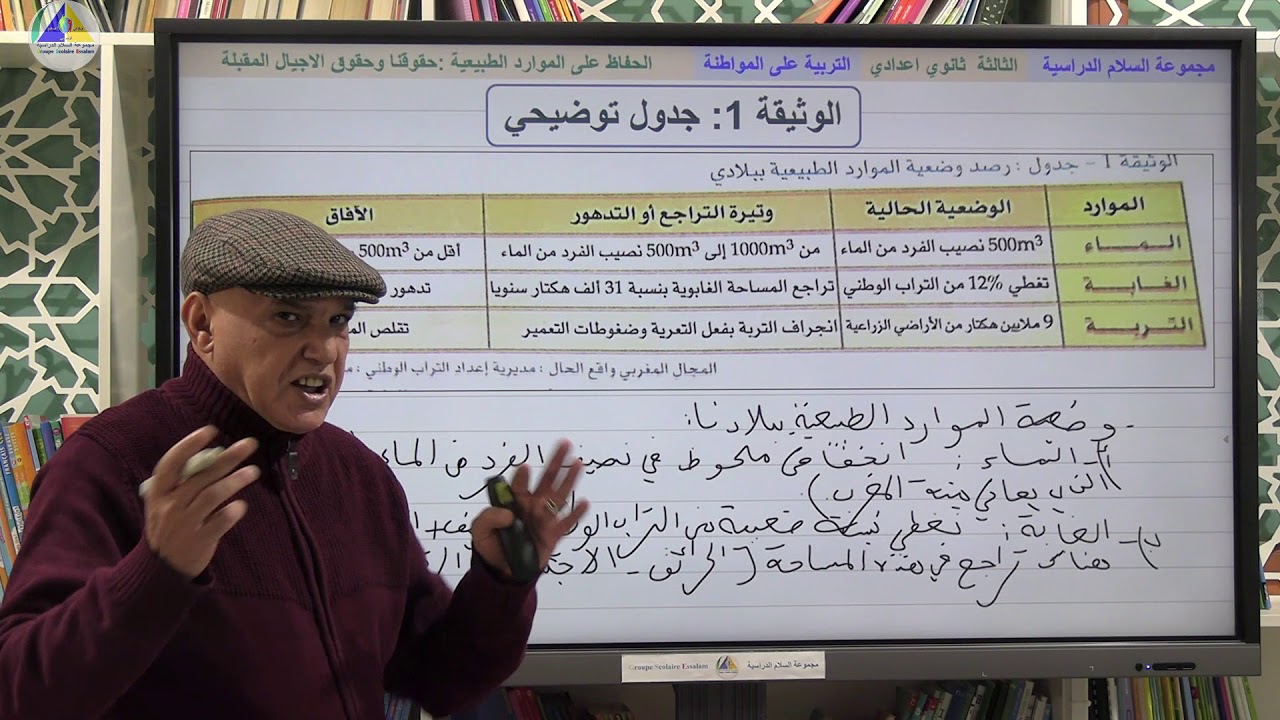 مجموعة السلام الدراسية
Groupe Scolaire Essalam
مجموعة السلام الدراسية الثالثة ثانوي اعدادي التربية على المواطنة الحفاظ على الموارد الطبيعية :حقوقنا وحقوق الاجيال المقبلة
الوثيقة 1: جدول توضيحي
الوثيقة 1 - جدول : رصد وضعية الموارد الطبيعية ببلادي
الموارد الوضعية الحالية وتيرة التراجع أو التدهور الآفاق
الـمـــاء 500m³ نصيب الفرد من الماء من 1000m³ إلى 500m³ نصيب الفرد من الماء أقل من 500m³
الغـابـــة تغطي %12 من التراب الوطني تراجع المساحة الغابوية بنسبة 31 ألف هكتار سنويا تدهور
التربـــة 9 ملايين هكتار من الأراضي الزراعية انجراف التربة بفعل التعرية وضغوطات التعمير تقلص
المجال المغربي واقع الحال : مديرية إعداد التراب الوطني :
- وضعية الموارد الطبيعية ببلادنا:
أ - الماء : انخفاض ملحوظ في نصيب الفرد من الماء
الذي يعاني منه المغرب)
ب - الغابة : تغطي نسبة ضعيفة من التراب
هناك تراجع في هذه المساحة (الحرائق -
Groupe Scolaire Essalam مجموعة السلام الدراسية